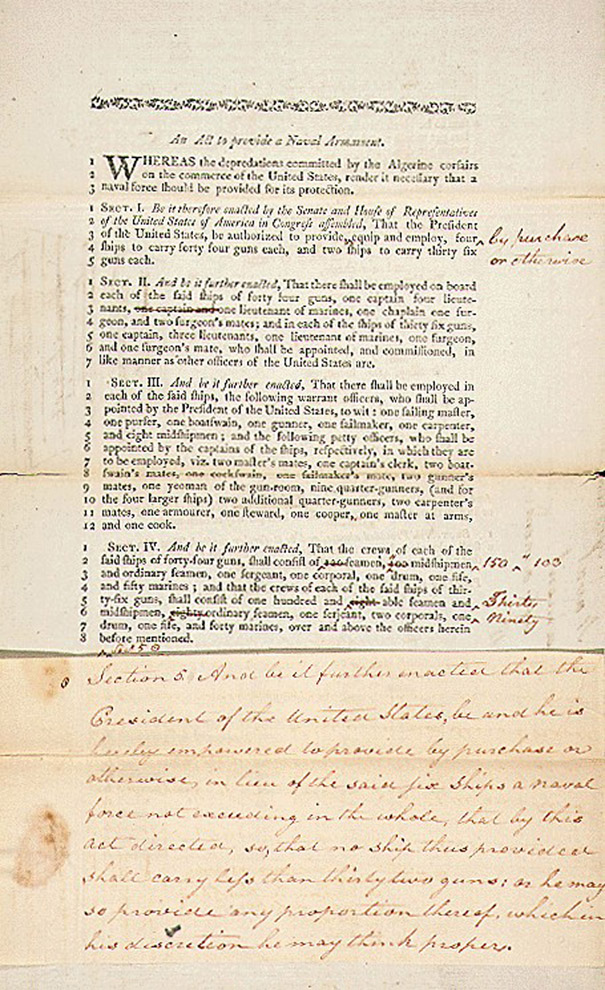 An Act to provide a Naval Armament.
1 WHEREAS the depredations committed by the Algerine corsairs
2 on the commerce of the United States, render it necessary that a
3 naval force should be provided for its protection.
1 SECT. I. Be it therefore enacted by the Senate and House of Representatives
2 of the United States of America in Congress assembled, That the President
3 of the United States, be authorized to provide, equip and employ, four ^ by purchase
4 ships to carry forty four guns each, and two ships to carry thirty six or otherwise
5 guns each.
1 SECT. II. And be it further enacted, That there shall be employed on board
2 each of the said ships of forty four guns, one captain four lieute-
3 nants, one captain and one lieutenant of marines, one chaplain one sur-
4 geon, and two surgeon's mates; and in each of the ships of thirty six guns,
5 one captain, three lieutenants, one lieutenant of marines, one surgeon,
6 and one surgeon's mate, who shall be appointed, and commissioned, in
7 like manner as other officers of the United States are.
1 SECT. III. And be it further enacted, That there shall be employed in
2 each of the said ships, the following warrant officers, who shall be ap-
3 pointed by the President of the United States, to wit: one sailing master,
4 one purser, one boatswain, one gunner, one sailmaker, one carpenter,
5 and eight midshipmen; and the following petty officers, who shall be
6 appointed by the captains of the ships, respectively, in which they are
7 to be employed, viz. two master's mates, one captain's clerk, two boat-
8 swain's mates, one cockswain, one sailmaker's mate, two gunner's
9 mates, one yeoman of the gun-room, nine quarter-gunners, (and for
10 the four larger ships) two additional quarter-gunners, two carpenter's
11 mates, one armourer, one steward, one cooper, one master at arms,
12 and one cook.
1 SECT. IV. And be it further enacted, That the crews of each of the
2 said ships of forty-four guns, shall consist of seamen, midshipmen ^ 150 ^ 103
3 and ordinary seamen, one sergeant, one corporal, one drum, one fife,
4 and fifty marines; and that the crews of each of the said ships of thir-
5 ty-six guns, shall consist of one hundred and eight able seamen and ^ Thirty
6 midshipmen, eighty ordinary seamen, one serjeant, two corporals, one ^ Ninety
7 drum, one fife, and forty marines, over and above the officers herein
8 before mentioned.
Section 5. And be it further enacted that the
President of the United States, be and he is
hereby empowered to provide by purchase or
otherwise, in lieu of the said six ships a naval
force not exceeding in the whole, that by this
act directed, so, that no ship thus provided
shall carry less than thirty two guns: or he may
so provide any proportion thereof, which in
his discretion he may think proper.